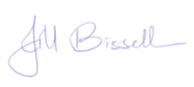 Jill Bissell